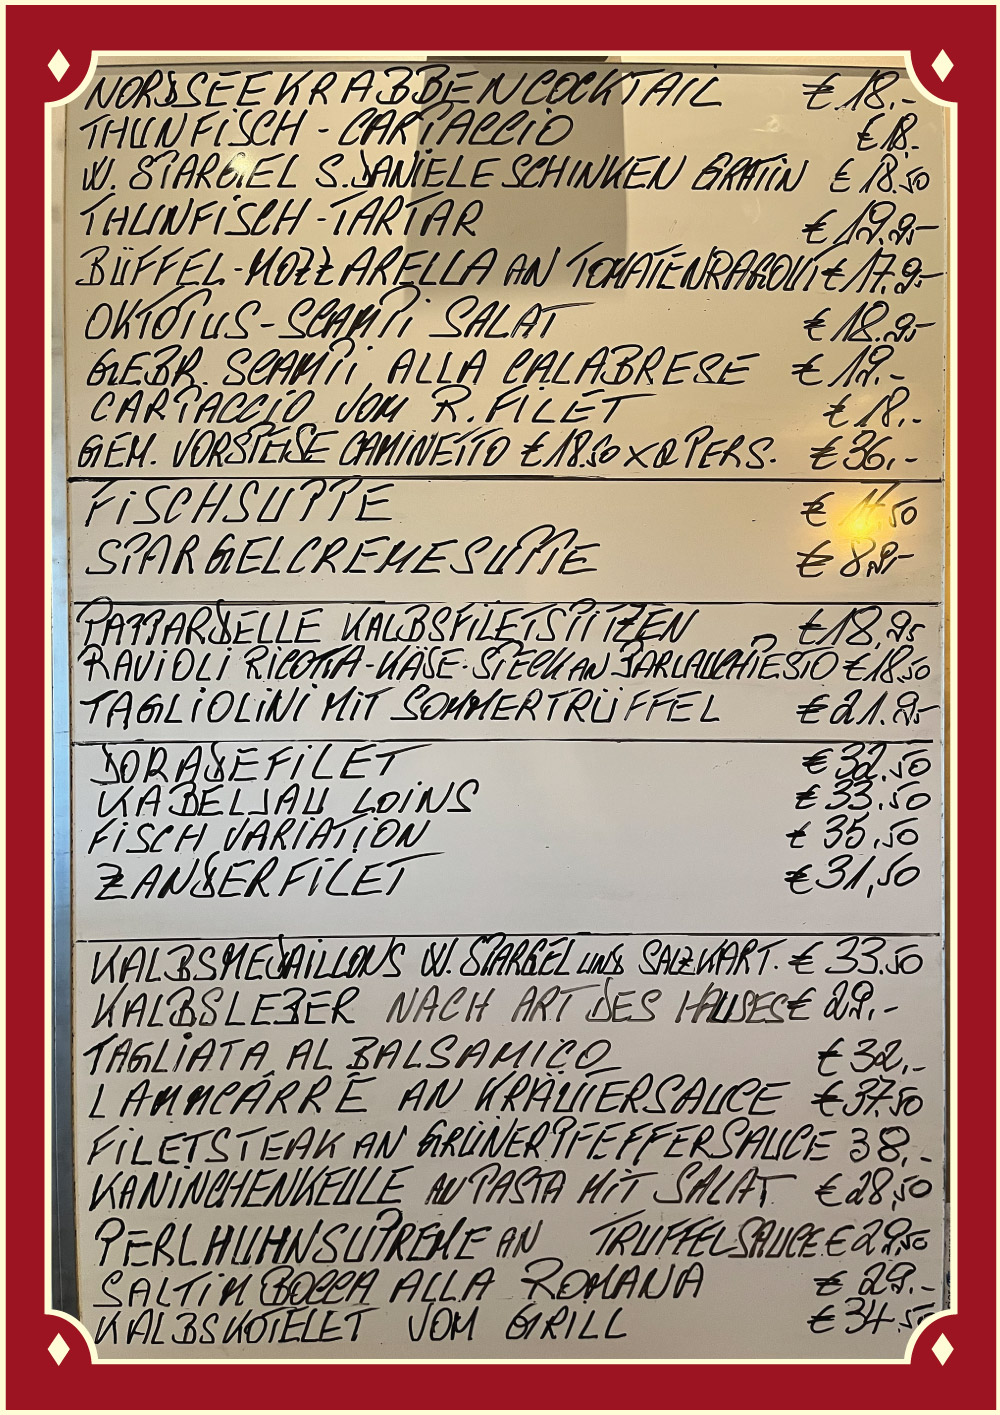 NORDSEEKRABBENCOCKTAIL € 18.-
THUNFISCH - CARPACCIO € 18.-
W. SPARGEL S. DANIELE SCHINKEN GRATIN € 18.50
THUNFISCH - TARTAR € 19.95
BÜFFEL - MOZZARELLA AN TOMATENRAGOUT € 17.9-
OKTOPUS - SCAMPI SALAT € 18.95
GEBR. SCAMPI ALLA CALABRESE € 19.-
CARPACCIO VOM R. FILET € 18.-
GEM. VORSPEISE CAMINETTO € 18.50 x 2 PERS. € 36,-
FISCHSUPPE € 50
SPARGELCREMESUPPE € 8.9-
PAPPARDELLE KALBSFILETSPITZEN € 18.95
RAVIOLI RICOTTA - KÄSE - SPECK AN BÄRLAUCHPESTO € 18.50
TAGLIOLINI MIT SOMMERTRÜFFEL € 21.95
DORADEFILET € 32.50
KABELJAU LOINS € 33.50
FISCH VARIATION € 35,50
ZANDERFILET € 31,50
KALBSMEDAILLONS W. SPARGEL UND SALZKART. € 33.50
KALBSLEBER NACH ART DES HAUSES € 29,-
TAGLIATA AL BALSAMICO € 32,-
LAMMCARRÉ AN KRÄUTERSAUCE € 37.50
FILETSTEAK AN GRÜNER PFEFFERSAUCE 38,-
KANINCHENKEULE AN PASTA MIT SALAT € 28,50
PERLHUHNSUPREME AN TRUFFELSAUCE € 29,50
SALTIM BOCCA ALLA ROMANA € 29.-
KALBSKOTELET VOM GRILL € 34.50